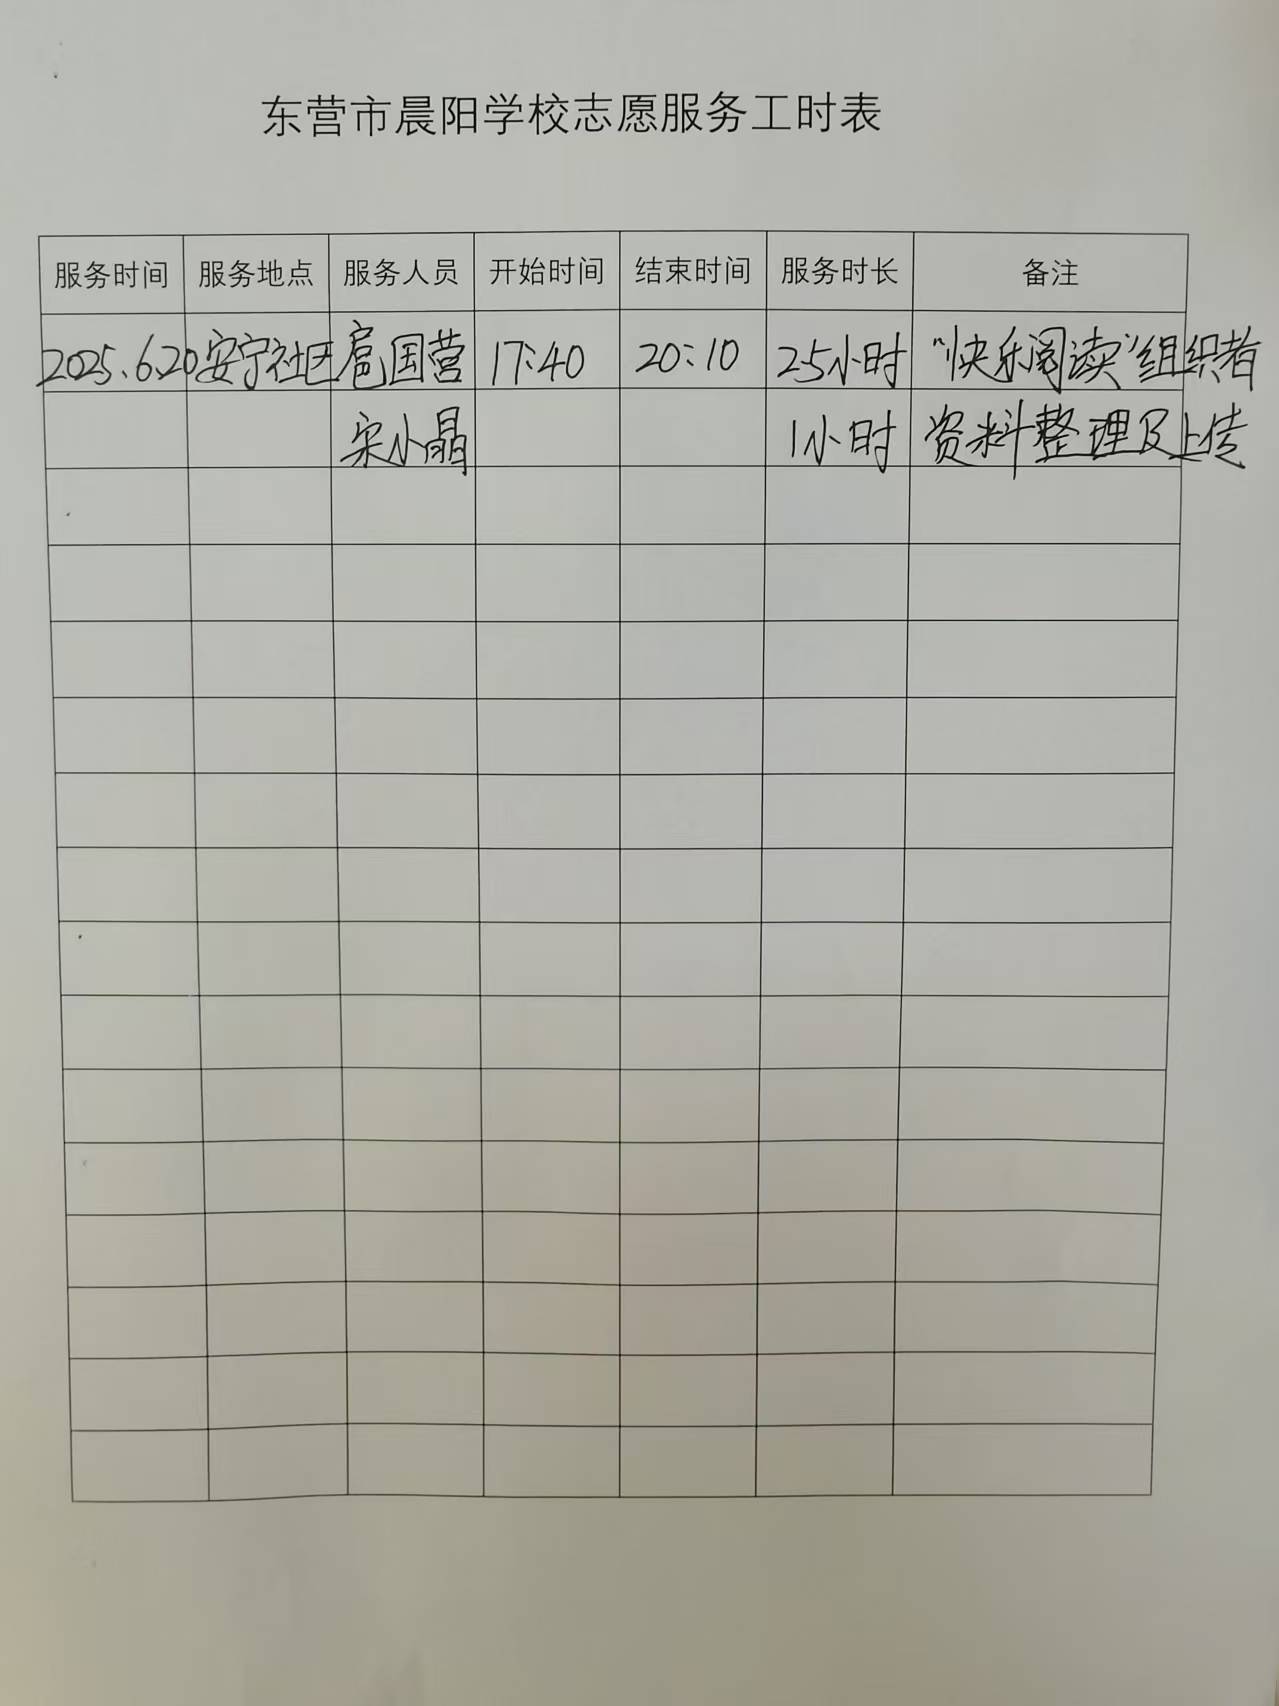 东营市晨阳学校志愿服务工时表
服务时间 服务地点 服务人员 开始时间 结束时间 服务时长 备注
2025.6.20 安宁社区 扈国营 17:40 20:10 2.5小时 "快乐阅读"组织者
宋小晶 1小时 资料整理及上传